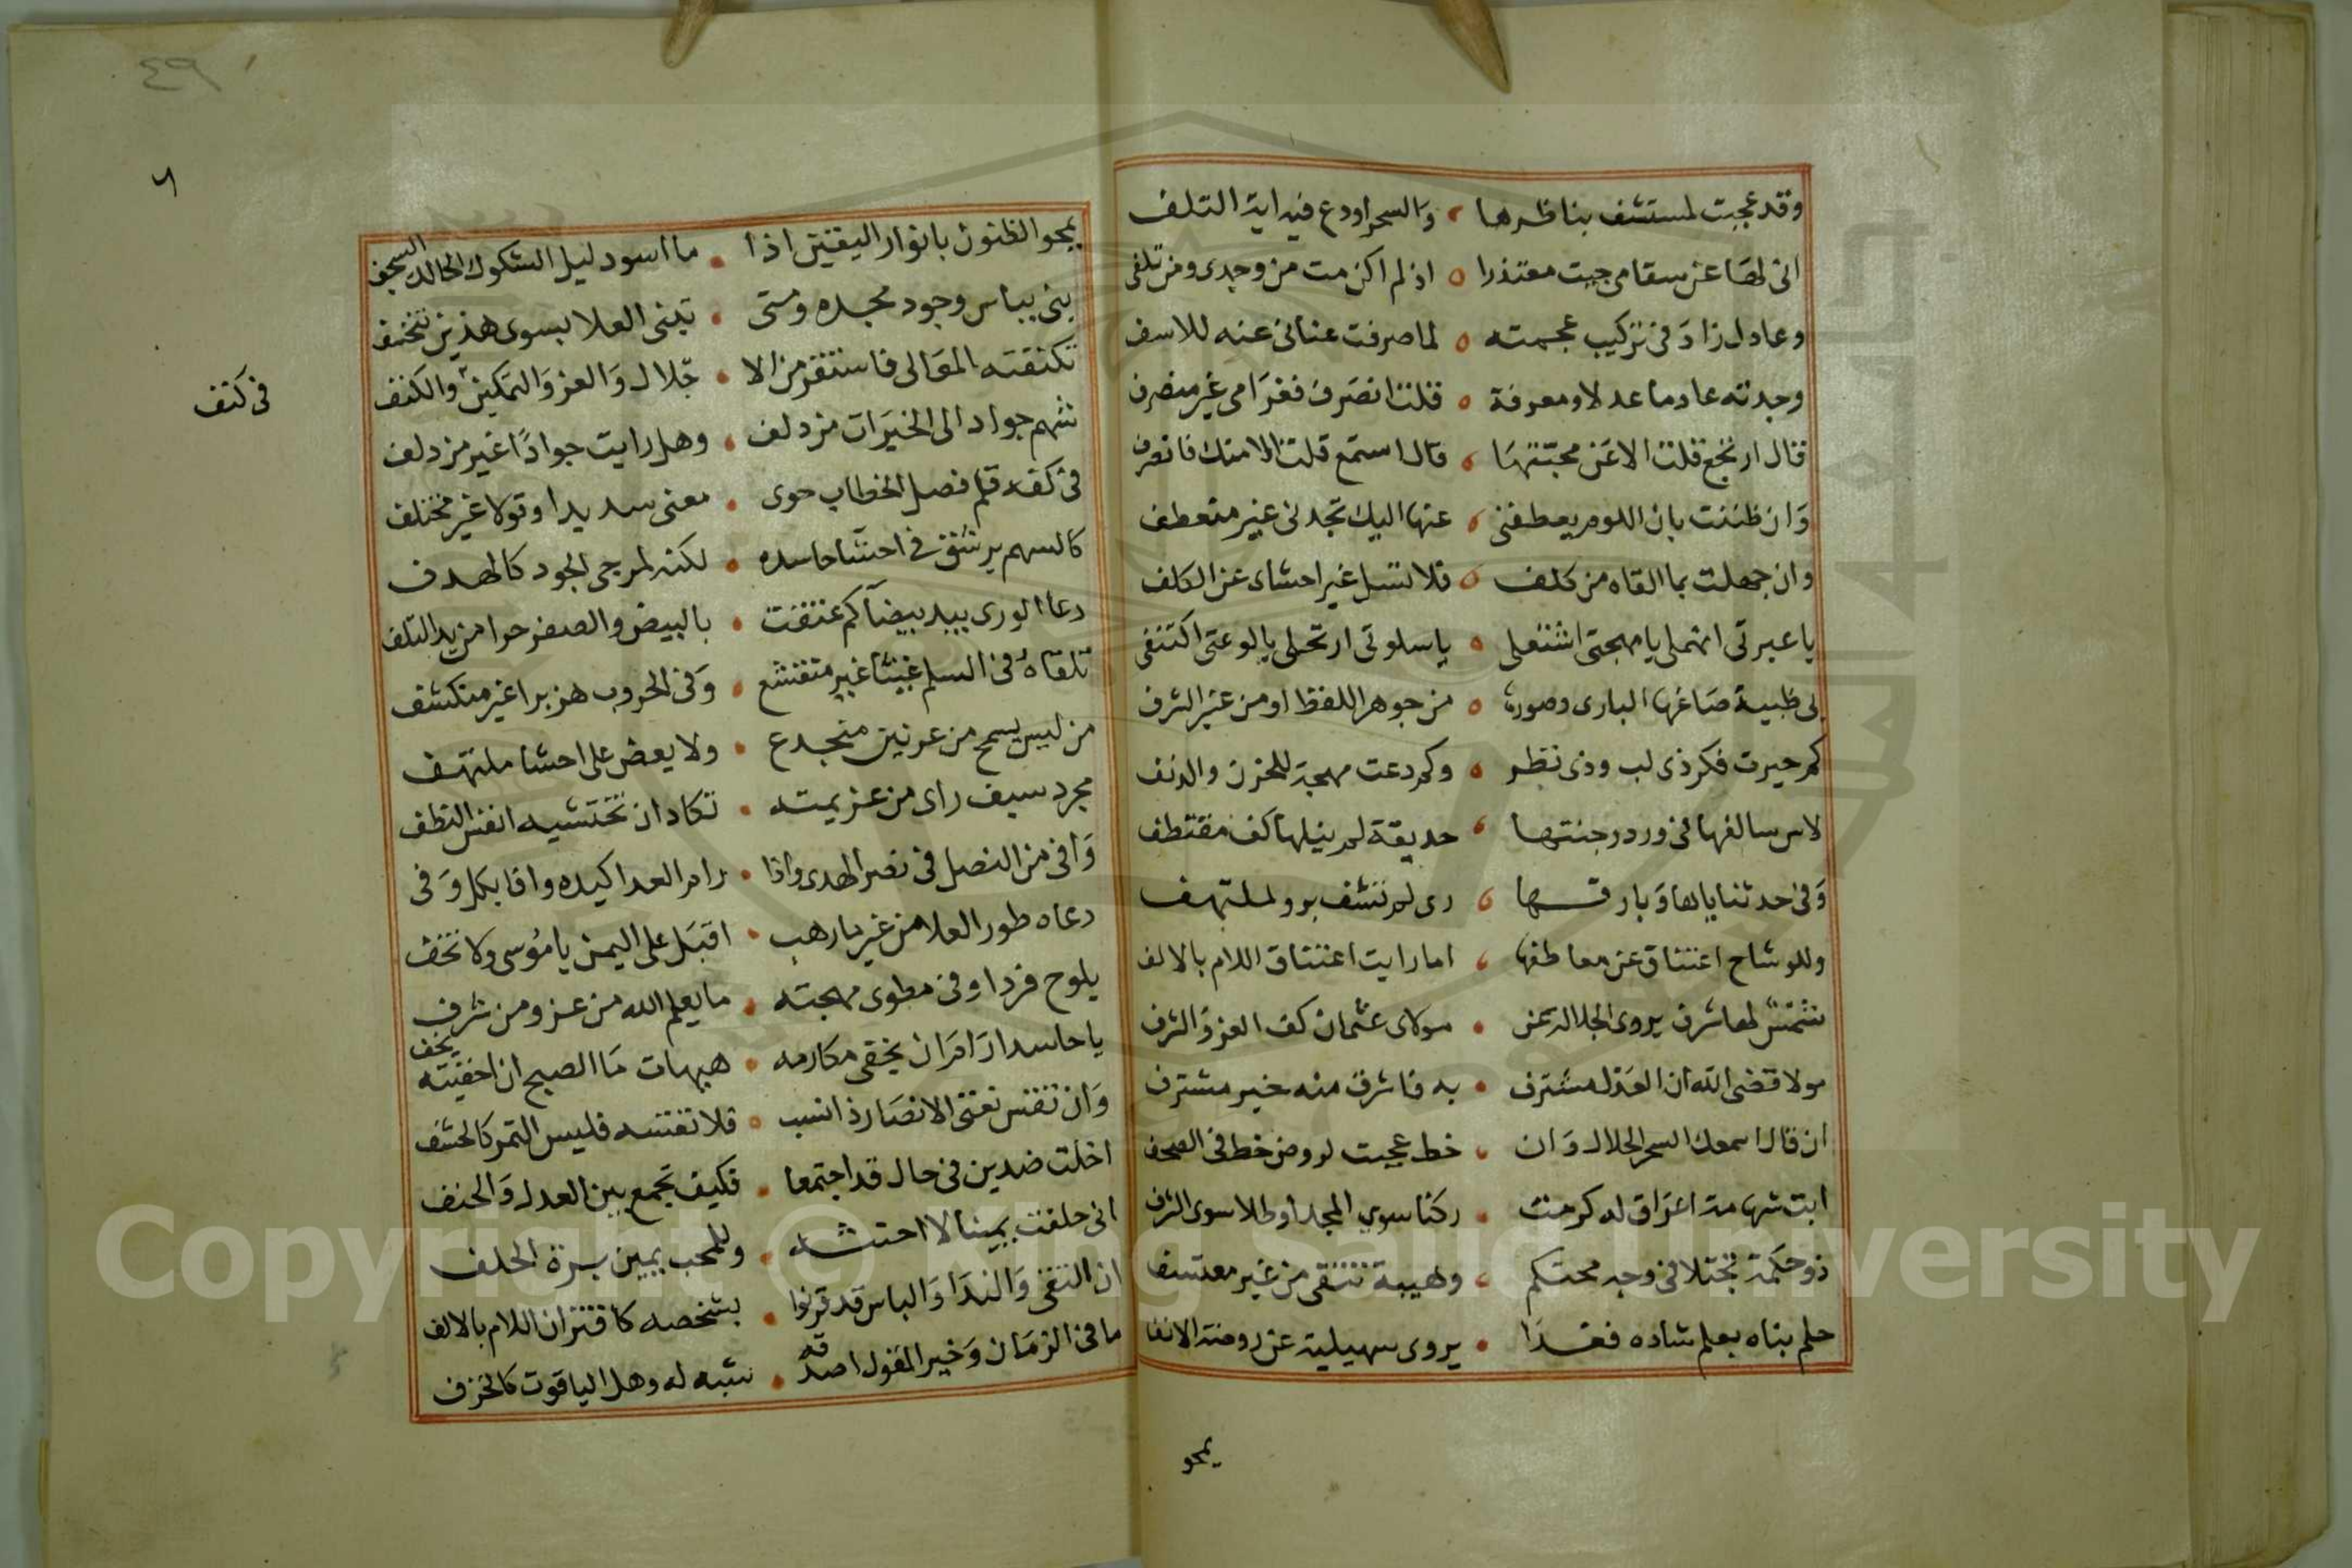 وقد عجبت لمستشف بناظرها والسحر اودع فيه اية التلف
انى لها عن سقامى جيت معتذرا اذ لم اكن مت من وجدى ومن تلفى
وعادل زاد فى تركيب عجمته لما صرفت عنانى عنه للاسف
وجدته عادما عدلا ومعرفة فقلت انصرف فغرامى غير منصرف
فقال ارتجع فقلت الا عن محبتها قال استمع قلت الا منك فانصرف
وان ظننت بان اللوم يعطفنى عنها اليك تجدنى غير منعطف
وان جهلت بما القاه من كلف فلا تسل غير احشاى عن الكلف
يا عبرتى انهملى يا مهجتى اشتعلى يا سلوتى ارتحلى يا لوعتى اكتنفى
بى ظبية صاغها البارى وصورها من جوهر اللفظ او من عنبر الترف
كم حيرت فكر ذى لب وذى نظر وكم دعت مهجة للحزن والدنف
لاس سالفها فى ورد وجنتها حديقة لم ينلها كف مقتطف
وفى حدثناياها وبارقها رى لم تشف برو لملتهف
وللوشاح اعتناق عن معاطفها اما رايت اعتناق اللام بالالف
شمش لها شرف يروى الجلالة عن مولاى عثمان كف العز والشرف
مولا قضى الله ان العدل مشترف به فاشرف منه خير مشترف
ان قال اسمعك السحر الحلال وان خط عجبت لروض خط فى الصحف
ابت شهامة اعراق له كرمت ركنا سوى المجد او طلا سوى الشرف
ذو حكمة تجتلا فى وجه محتكم وهيبة تتقى من غير معتسف
حلم بناه بعلم شاده فغدا يروى سهيلية عن روضة الانف
يمحو
٤٩
يمحو الظنون بانوار اليقين اذا ما اسود ليل الشكوك الحالك السجف
بنى بباس وجود مجده ومتى تبنى العلا بسوى هذين تنخسف
تكنفته المعالى فاستقر من الا جلال والعز والتمكين والكنف
فى كنف
شهم جواد الى الخيرات مزدلف وهل رايت جوادا غير مزدلف
فى كفه قلم فصل الخطاب حوى معنى سديدا وقولا غير مختلف
كالسهم يرشق فى احشا حاسده لكنه لمرجى الجود كالهدف
دعا الورى بيد بيضا كم عتقت بالبيض والصفر حرا من يد التلف
تلقاه فى السلم غيثا غير منقشع وفى الحروب هزبرا غير منكشف
من ليس يسمح من عرنين منجدع ولا يعض على احشا ملتهف
مجرد سيف راى من عزيمته تكاد ان تختشيه انفس النطف
وافى من النصل فى نصر الهدى واذا رام العدا كيده وافا بكل وفى
دعاه طور العلا من غير ما رهب اقبل على اليمن يا موسى ولا تخف
يلوح فردا وفى مطوى مهجته ما يعلم الله من عز ومن شرف
يا حاسدا رام ان يخفى مكارمه هيهات ما الصبح ان اخفيته يخف
وان تقس نعتى الانصار ذا نسب فلا تقسه فليس التمر كالحشف
اخلت ضدين فى حال قد اجتمعا فكيف تجمع بين العدل والحنف
انى حلفت يمينا لا احتشه وللمحب يمين برة الحلف
ان التقى والندا والباس قد قرنوا بشخصه كاقتران اللام بالالف
ما فى الزمان وخير القول اصدقه شبه له وهل الياقوت كالخزف
Copyright © King Saud University